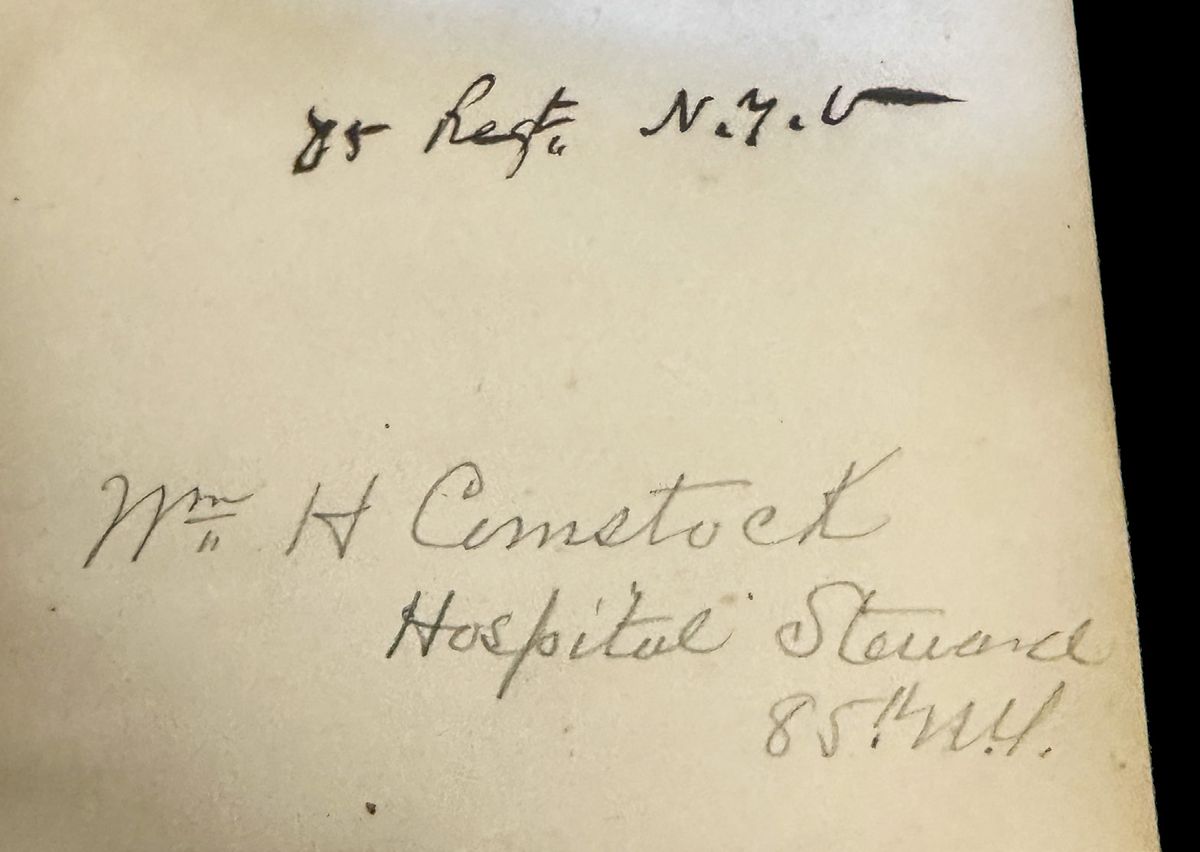 85 Regt. N.Y.V
Wm H Comstock
Hospital Steward
85th N.Y.